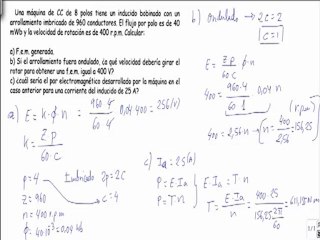 Una máquina de CC de 8 polos tiene un inducido bobinado con un
arrollamiento imbricado de 960 conductores. El flujo por polo es de 40
mWb y la velocidad de rotación es de 400 r.p.m. Calcular:
a) F.e.m. generada.
b) Si el arrollamiento fuera ondulado, ¿a qué velocidad debería girar el
rotor para obtener una f.e.m. igual a 400 V?
c) ¿cual sería el par electromagnético desarrollado por la máquina en el
caso anterior para una corriente del inducido de 25 A?
a) E = k·ϕ·n = 960·4/60·4 · 0,04·400 = 256 (V)
k = Z p / 60 c
p = 4
Imbricado 2p = 2c
c = 4
Z = 960
n = 400 r.p.m
ϕ = 40·10⁻³ = 0,04 Wb
b) ondulado → 2c = 2
c = 1
E = Z p / 60 c · ϕ n
400 = 960·4 / 60·1 · 0,04·n
400 = 2,56 n → n = 400/2,56 = 156,25 (r.p.m)
c) Ia = 25 (A)
P = E·Ia
P = T n
E·Ia = T n
T = E·Ia / n = 400·25 / 156,25 2π/60